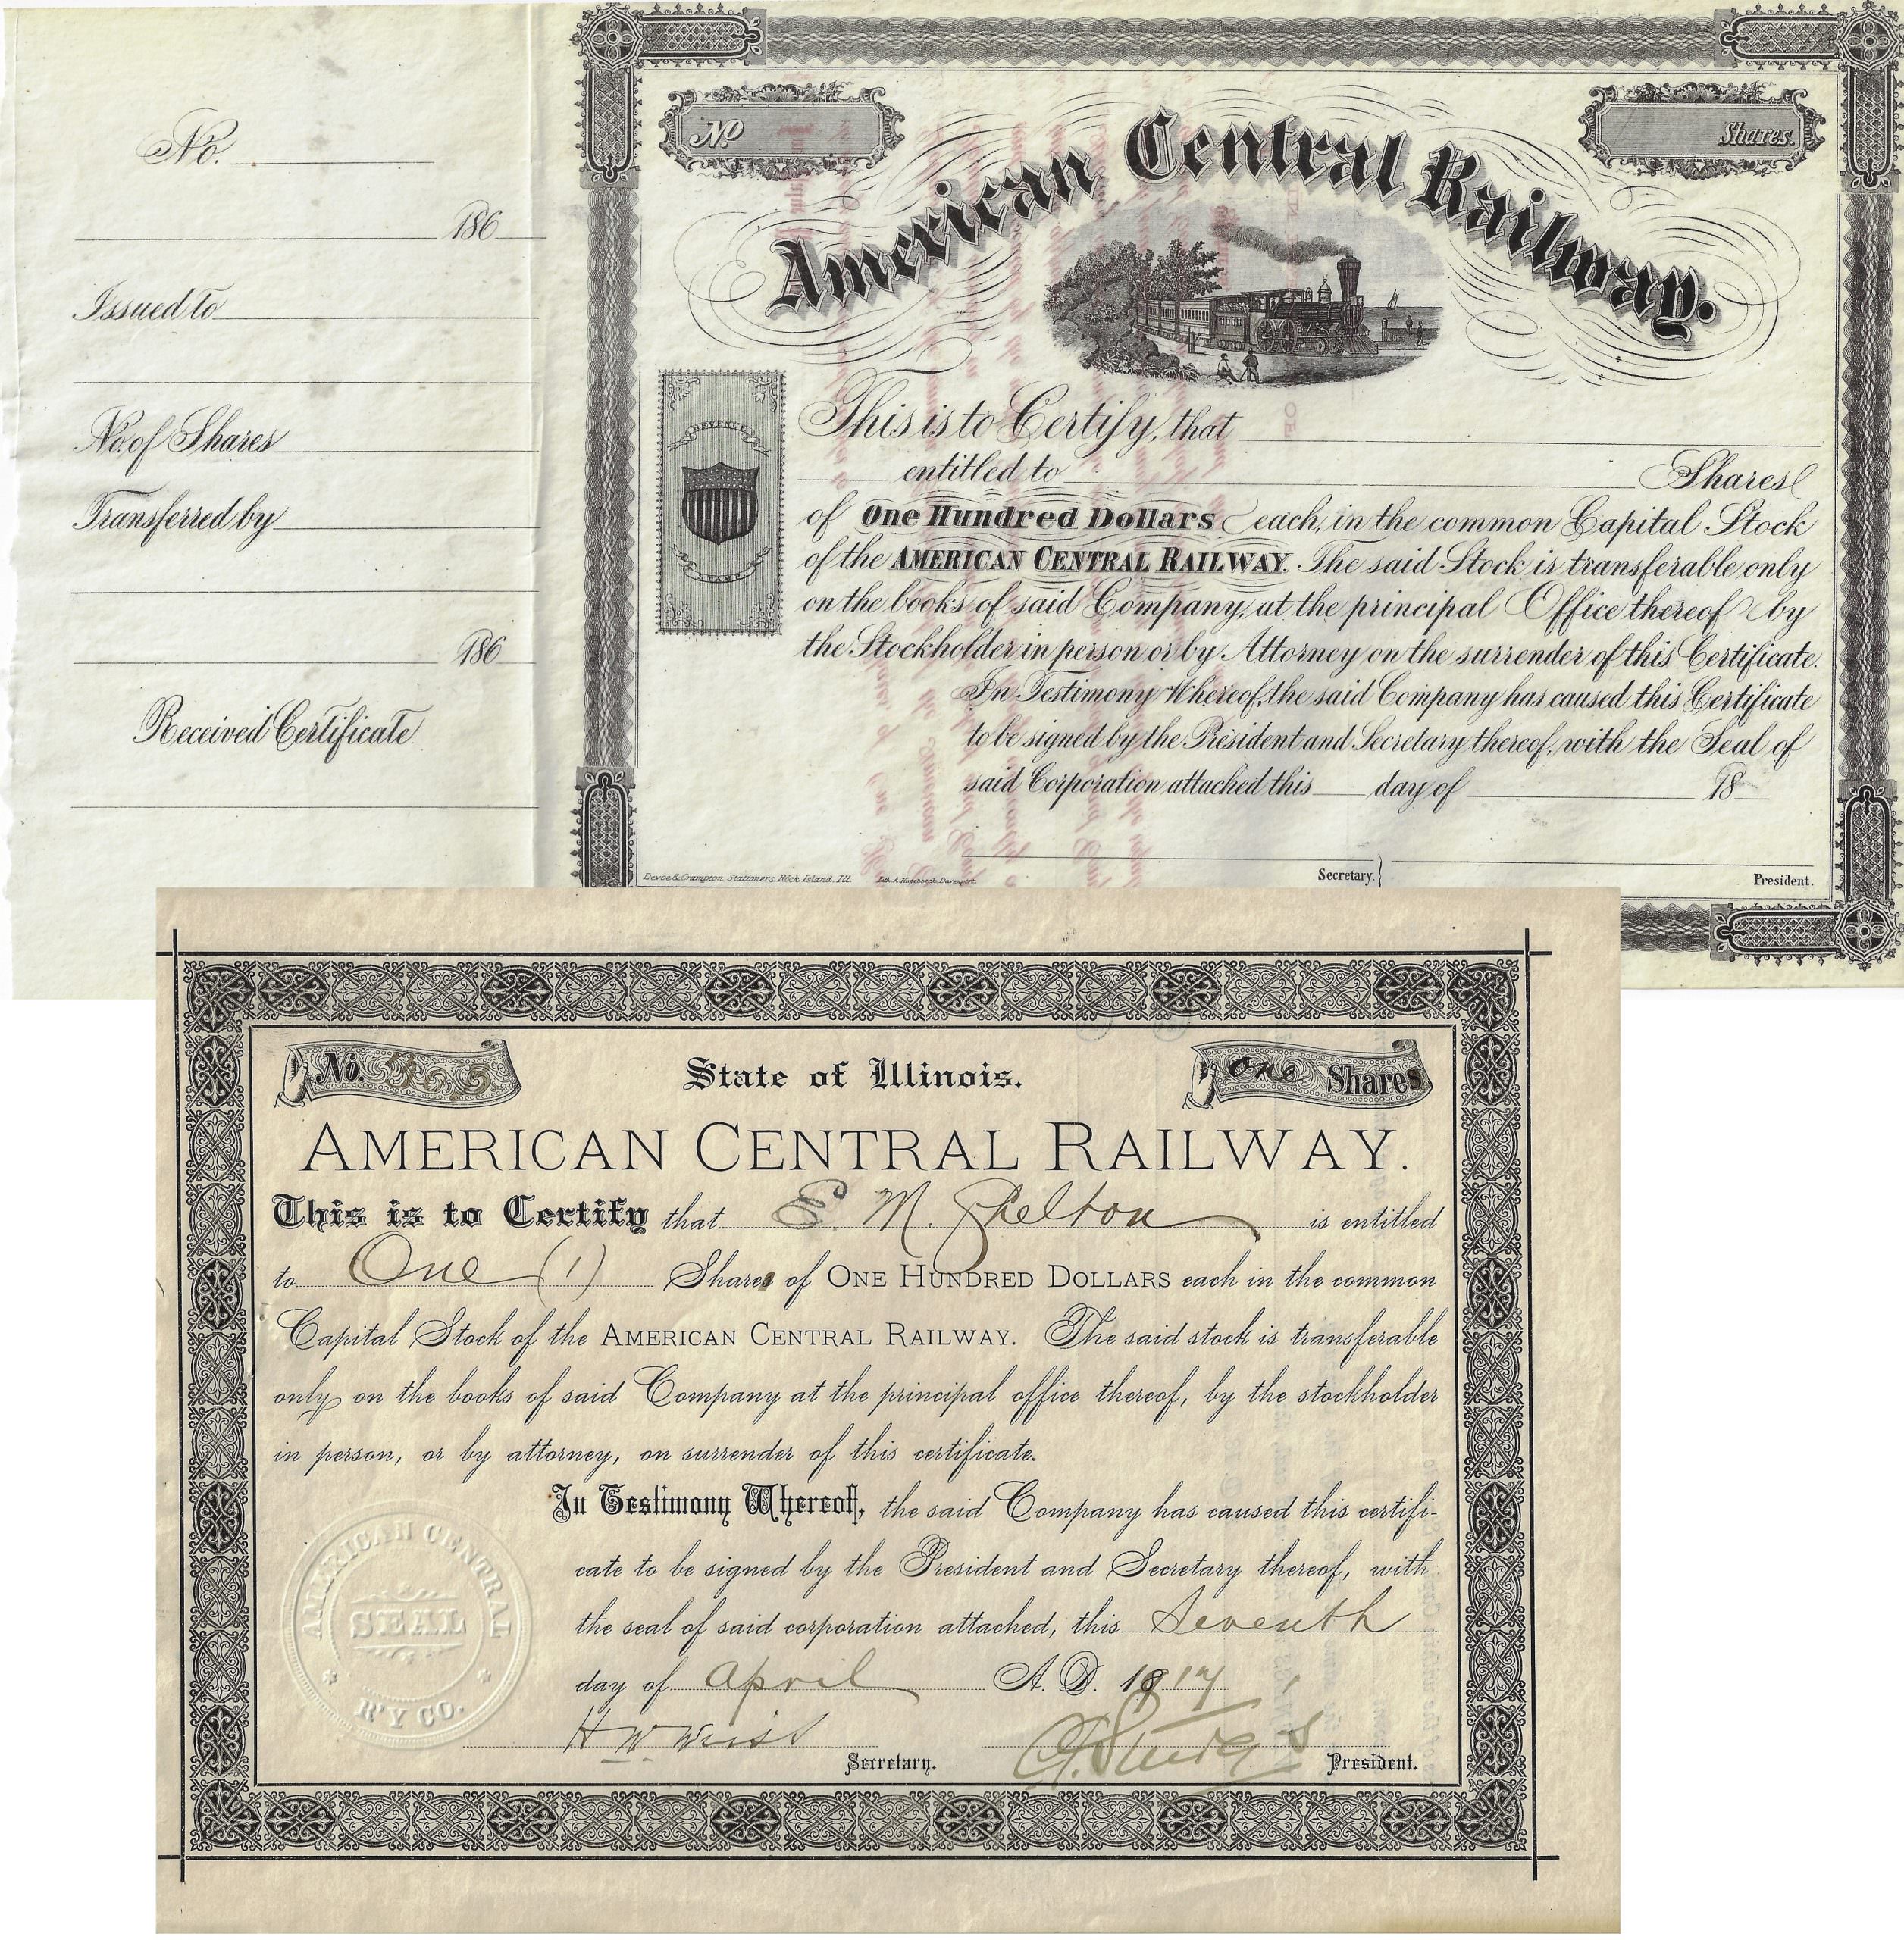 No.
186
Issued to
No. of Shares
Transferred by
186
Received Certificate
No
Shares.
American Central Railway.
REVENUE
STAMP
This is to Certify, that
entitled to Shares
of One Hundred Dollars each, in the common Capital Stock
of the AMERICAN CENTRAL RAILWAY. The said Stock is transferable only
on the books of said Company, at the principal Office thereof by
the Stockholder in person or by Attorney on the surrender of this Certificate.
In Testimony Whereof, the said Company has caused this Certificate
to be signed by the President and Secretary thereof, with the Seal of
said Corporation attached this day of 18
Secretary.
President.
Devoe & Crampton, Stationers, Rock Island, Ill. Lith. A. Hageboeck, Davenport.
No. 365
State of Illinois.
One Shares
AMERICAN CENTRAL RAILWAY.
This is to Certify that E. M. Shelton is entitled
to One (1) Share of ONE HUNDRED DOLLARS each in the common
Capital Stock of the AMERICAN CENTRAL RAILWAY. The said stock is transferable
only on the books of said Company at the principal office thereof, by the stockholder
in person, or by attorney, on surrender of this certificate.
In Testimony Whereof, the said Company has caused this certifi-
cate to be signed by the President and Secretary thereof, with
the seal of said corporation attached, this Seventh
day of April A. D. 1917
H W Weiss
Secretary.
President.
AMERICAN CENTRAL
SEAL
R'Y CO.